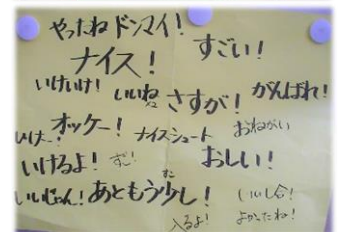 やったね ドンマイ!
ナイス! すごい!
いけいけ! いいね さすが! がんばれ!
オッケー! ナイスシュート おねがい
いけるよ! おしい!
いいじゃん! あともう少し! いいし合!
入るよ! よかったね!